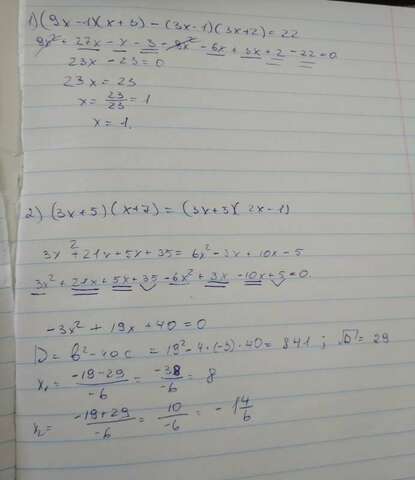 1) (9x-1)(x+3) - (3x-1)(3x+2) = 22
9x² + 27x - x - 3 - 9x² - 6x + 3x + 2 - 22 = 0
23x - 23 = 0
23x = 23
x = 23/23 = 1
x = 1.
2) (3x+5)(x+7) = (3x+5)(2x-1)
3x² + 21x + 5x + 35 = 6x² - 3x + 10x - 5
3x² + 21x + 5x + 35 - 6x² + 3x - 10x + 5 = 0.
-3x² + 19x + 40 = 0
D = b² - 4ac = 19² - 4·(-3)·40 = 841 ; √D = 29
x₁ = (-19-29)/-6 = -38/-6 = 8
x₂ = (-19+29)/-6 = 10/-6 = -1 4/6